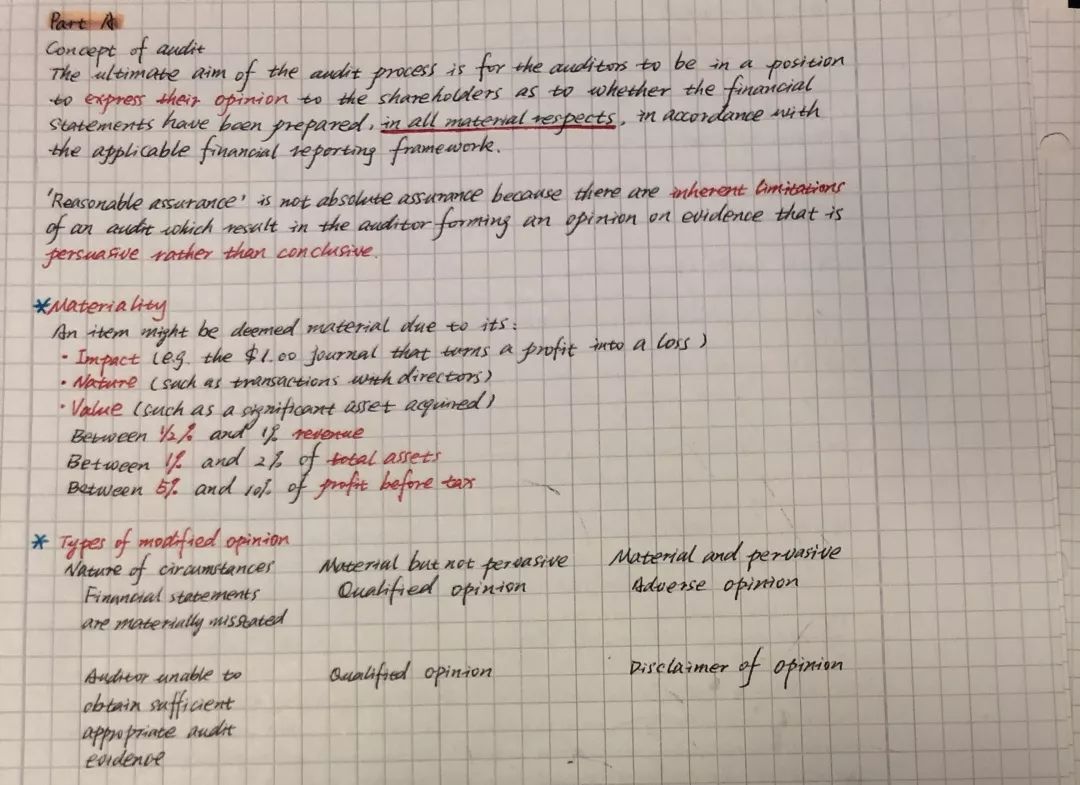 Part A
Concept of audit
The ultimate aim of the audit process is for the auditors to be in a position
to express their opinion to the shareholders as to whether the financial
statements have been prepared, in all material respects, in accordance with
the applicable financial reporting framework.
'Reasonable assurance' is not absolute assurance because there are inherent limitations
of an audit which result in the auditor forming an opinion on evidence that is
persuasive rather than conclusive.
*Materiality
An item might be deemed material due to its:
· Impact (e.g. the $1.00 journal that turns a profit into a loss)
· Nature (such as transactions with directors)
· Value (such as a significant asset acquired)
Between 1/2% and 1% revenue
Between 1% and 2% of total assets
Between 5% and 10% of profit before tax
* Types of modified opinion
Nature of circumstances Material but not pervasive Material and pervasive
Financial statements Qualified opinion Adverse opinion
are materially misstated
Auditor unable to Qualified opinion Disclaimer of opinion
obtain sufficient
appropriate audit
evidence